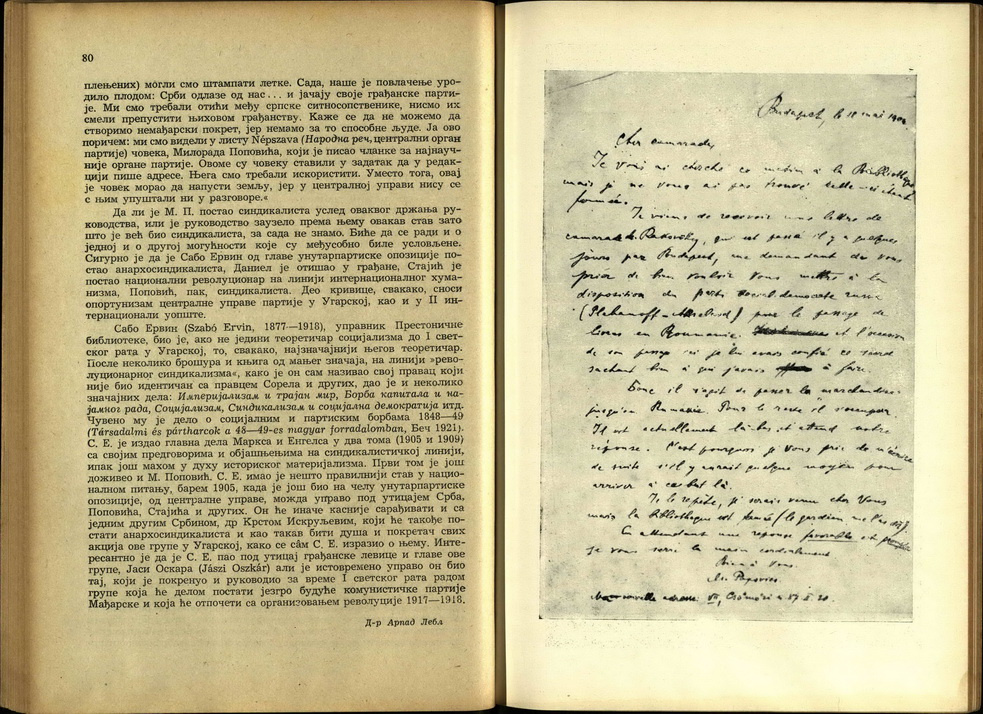 80
плењених) могли смо штампати летке. Сада, наше је повлачење уро-
дило плодом: Срби одлазе од нас... и јачају своје грађанске парти-
је. Ми смо требали отићи међу српске ситносопственике, нисмо их
смели препустити њиховом грађанству. Каже се да не можемо да
створимо немађарски покрет, јер немамо за то способне људе. Ја ово
поричем: ми смо видели у листу Népszava (Народна реч, централни орган
партије) човека, Милорада Поповића, који је писао чланке за најнауч-
није органе партије. Овоме су човеку ставили у задатак да у редак-
цији пише адресе. Њега смо требали искористити. Уместо тога, овај
је човек морао да напусти земљу, јер у централној управи нису се
с њим упуштали ни у разговоре.«
Да ли је М. П. постао синдикалиста услед оваквог држања ру-
ководства, или је руководство заузело према њему овакав став зато
што је већ био синдикалиста, за сада не знамо. Биће да се ради и о
једној и о другој могућности које су међусобно биле условљене.
Сигурно је да је Сабо Ервин од главе унутарпартиске опозиције по-
стао анархосиндикалиста, Даниел је отишао у грађане, Стајић је
постао национални револуционар на линији интернационалног хума-
низма, Поповић, пак, синдикалиста. Део кривице, свакако, сноси
опортунизам централне управе партије у Угарској, као и у II ин-
тернационали уопште.
Сабо Ервин (Szabó Ervin, 1877—1918), управник Престоничне
библиотеке, био је, ако не једини теоретичар социјализма до I свет-
ског рата у Угарској, то, свакако, најзначајнији његов теоретичар.
После неколико брошура и књига од мањег значаја, на линији »рево-
луционарног синдикализма«, како је он сам називао свој правац који
није био идентичан са правцем Сорела и других, дао је и неколико
значајних дела: Империјализам и трајан мир, Борба капитала и на-
јамног рада, Социјализам, Синдикализам и социјална демократија итд.
Чувено му је дело о социјалним и партиским борбама 1848—49
(Társadalmi és pártharcok a 48—49-es magyar forradalomban, Беч 1921).
С. Е. је издао главна дела Маркса и Енгелса у два тома (1905 и 1909)
са својим предговорима и објашњењима на синдикалистичкој линији,
ипак још махом у духу историског материјализма. Први том је још
доживео и М. Поповић. С. Е. имао је нешто правилнији став у нацио-
налном питању, барем 1905, када је још био на челу унутарпартиске
опозиције, од централне управе, можда управо под утицајем Срба,
Поповића, Стајића и других. Он ће иначе касније сарађивати и са
једним другим Србином, др Крстом Искруљевим, који ће такође по-
стати анархосиндикалиста и као такав бити душа и покретач свих
акција ове групе у Угарској, како се сâм С. Е. изразио о њему. Инте-
ресантно је да је С. Е. пао под утицај грађанске левице и главе ове
групе, Јаси Оскара (Jászi Oszkár) али је истовремено управо он био
тај, који је покренуо и руководио за време I светског рата радом
групе која ће делом постати језгро будуће комунистичке партије
Мађарске и која ће отпочети са организовањем револуције 1917—1918.
Д-р Арпад Лебл
Budapest, le 18 mai
Cher camarade,
Je vous ai cherché ce matin à la Bibliothèque
mais je ne vous ai pas trouvé celle-ci étant
fermée.
Je viens de recevoir une lettre de
camarade Rakovsky, qui est passé il y a quelques
jours par Budapest, me demandant de vous
prier de bien vouloir vous mettre à la
disposition du parti social-democrate russe
(Plekhanoff - Axelrod) pour le passage de
livres en Roumanie. et l'occasion
de son passage
sachant bien à qui j'avais à faire.
Donc il s'agit de passer la marchandise
jusqu'en Rumanie. Pour le reste il s'occuper
Il est actuellement là-bas et attend notre
réponse. C'est pourquoi je vous prie de m'écrire
de suite s'il y aurait quelque moyen pour
arriver à ce but là.
Je le répète, je serais venu chez vous
mais la Bibliothèque est fermée (le gardien me l'a dit)
En attendant une réponse favorable et
je vous serre la main cordialement
Bien à vous.
M. Popovics
nouvelle adresse: VII, Csömöri u 57 II. 20.